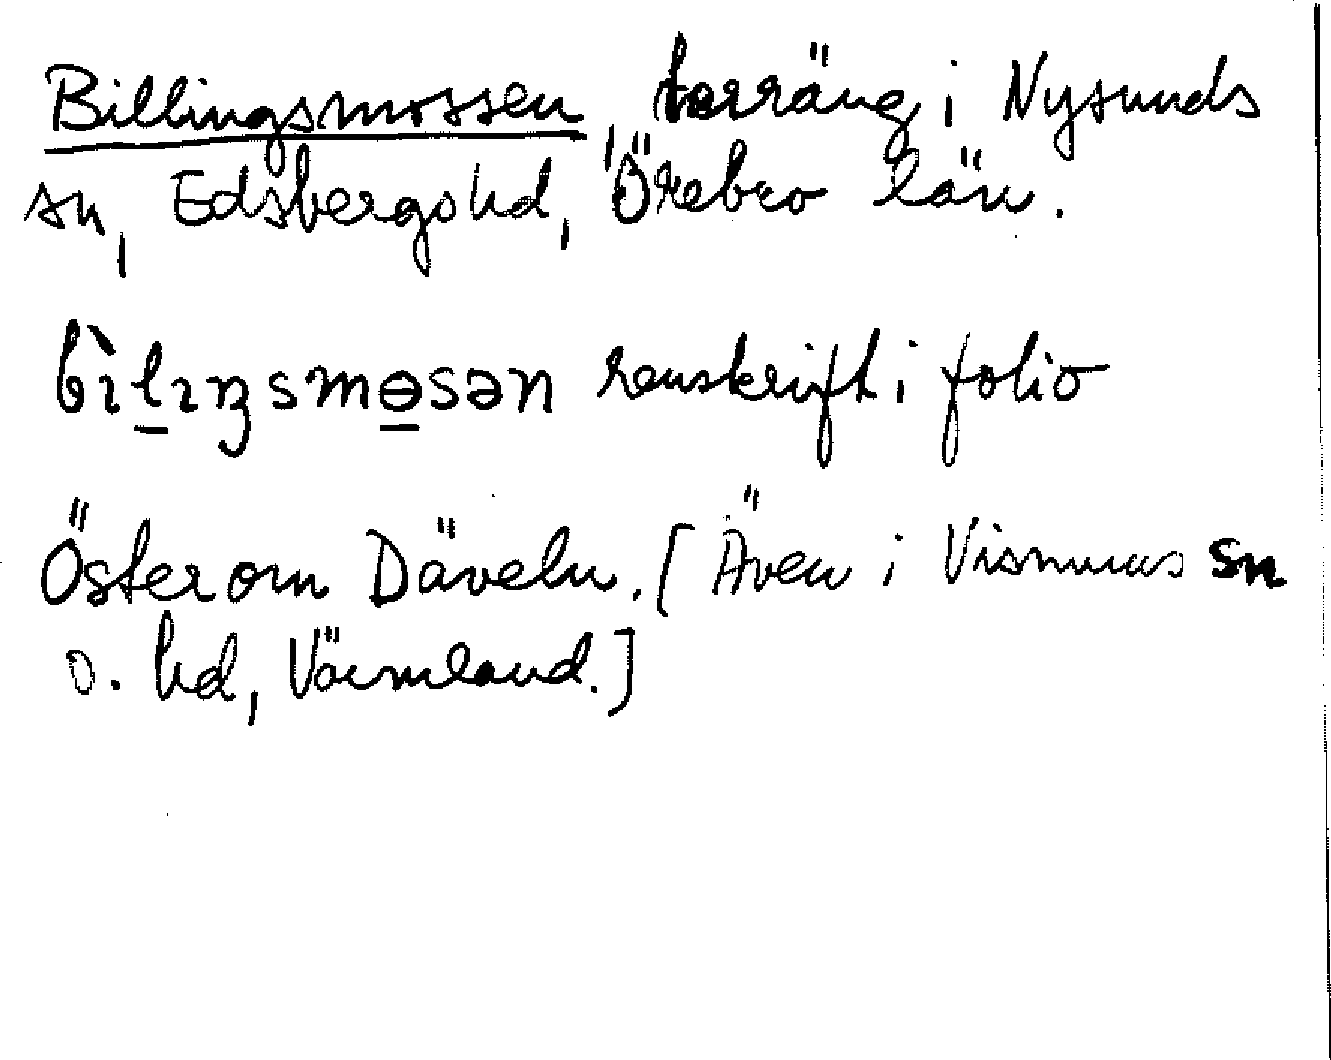 Billingsmossen, terräng i Nysunds
sn, Edsbergs hd, Örebro län.
bìlıŋsmɵsən renskrift i folio
Öster om Däveln. [Även i Visnums sn
o. hd, Värmland.]